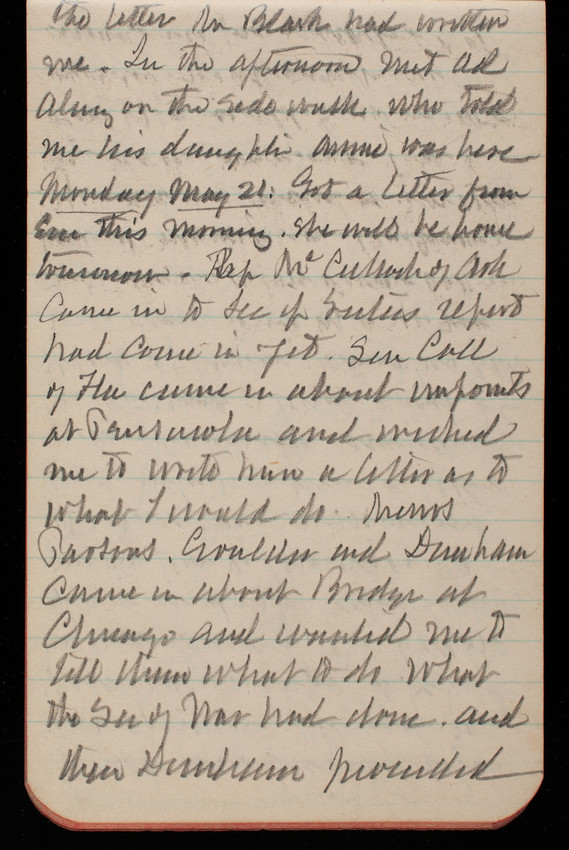 the letter Dr Black had written
me. In the afternoon met Ad
Alny on the side walk who told
me his daughter Annie was here
Monday May 21: Got a letter from
Em this morning. She will be home
tomorrow. Rep McCulloch of Ark
came in to see if report
had come in yet. Sen Call
of Fla came in about
at Pensacola and wished
me to write him a letter as to
what I would do. Messrs
Parsons, Goulder and Dunham
came in about Bridge at
Chicago and wanted me to
tell them what to do. What
the Sec of War had done. and
then Dunham proceeded